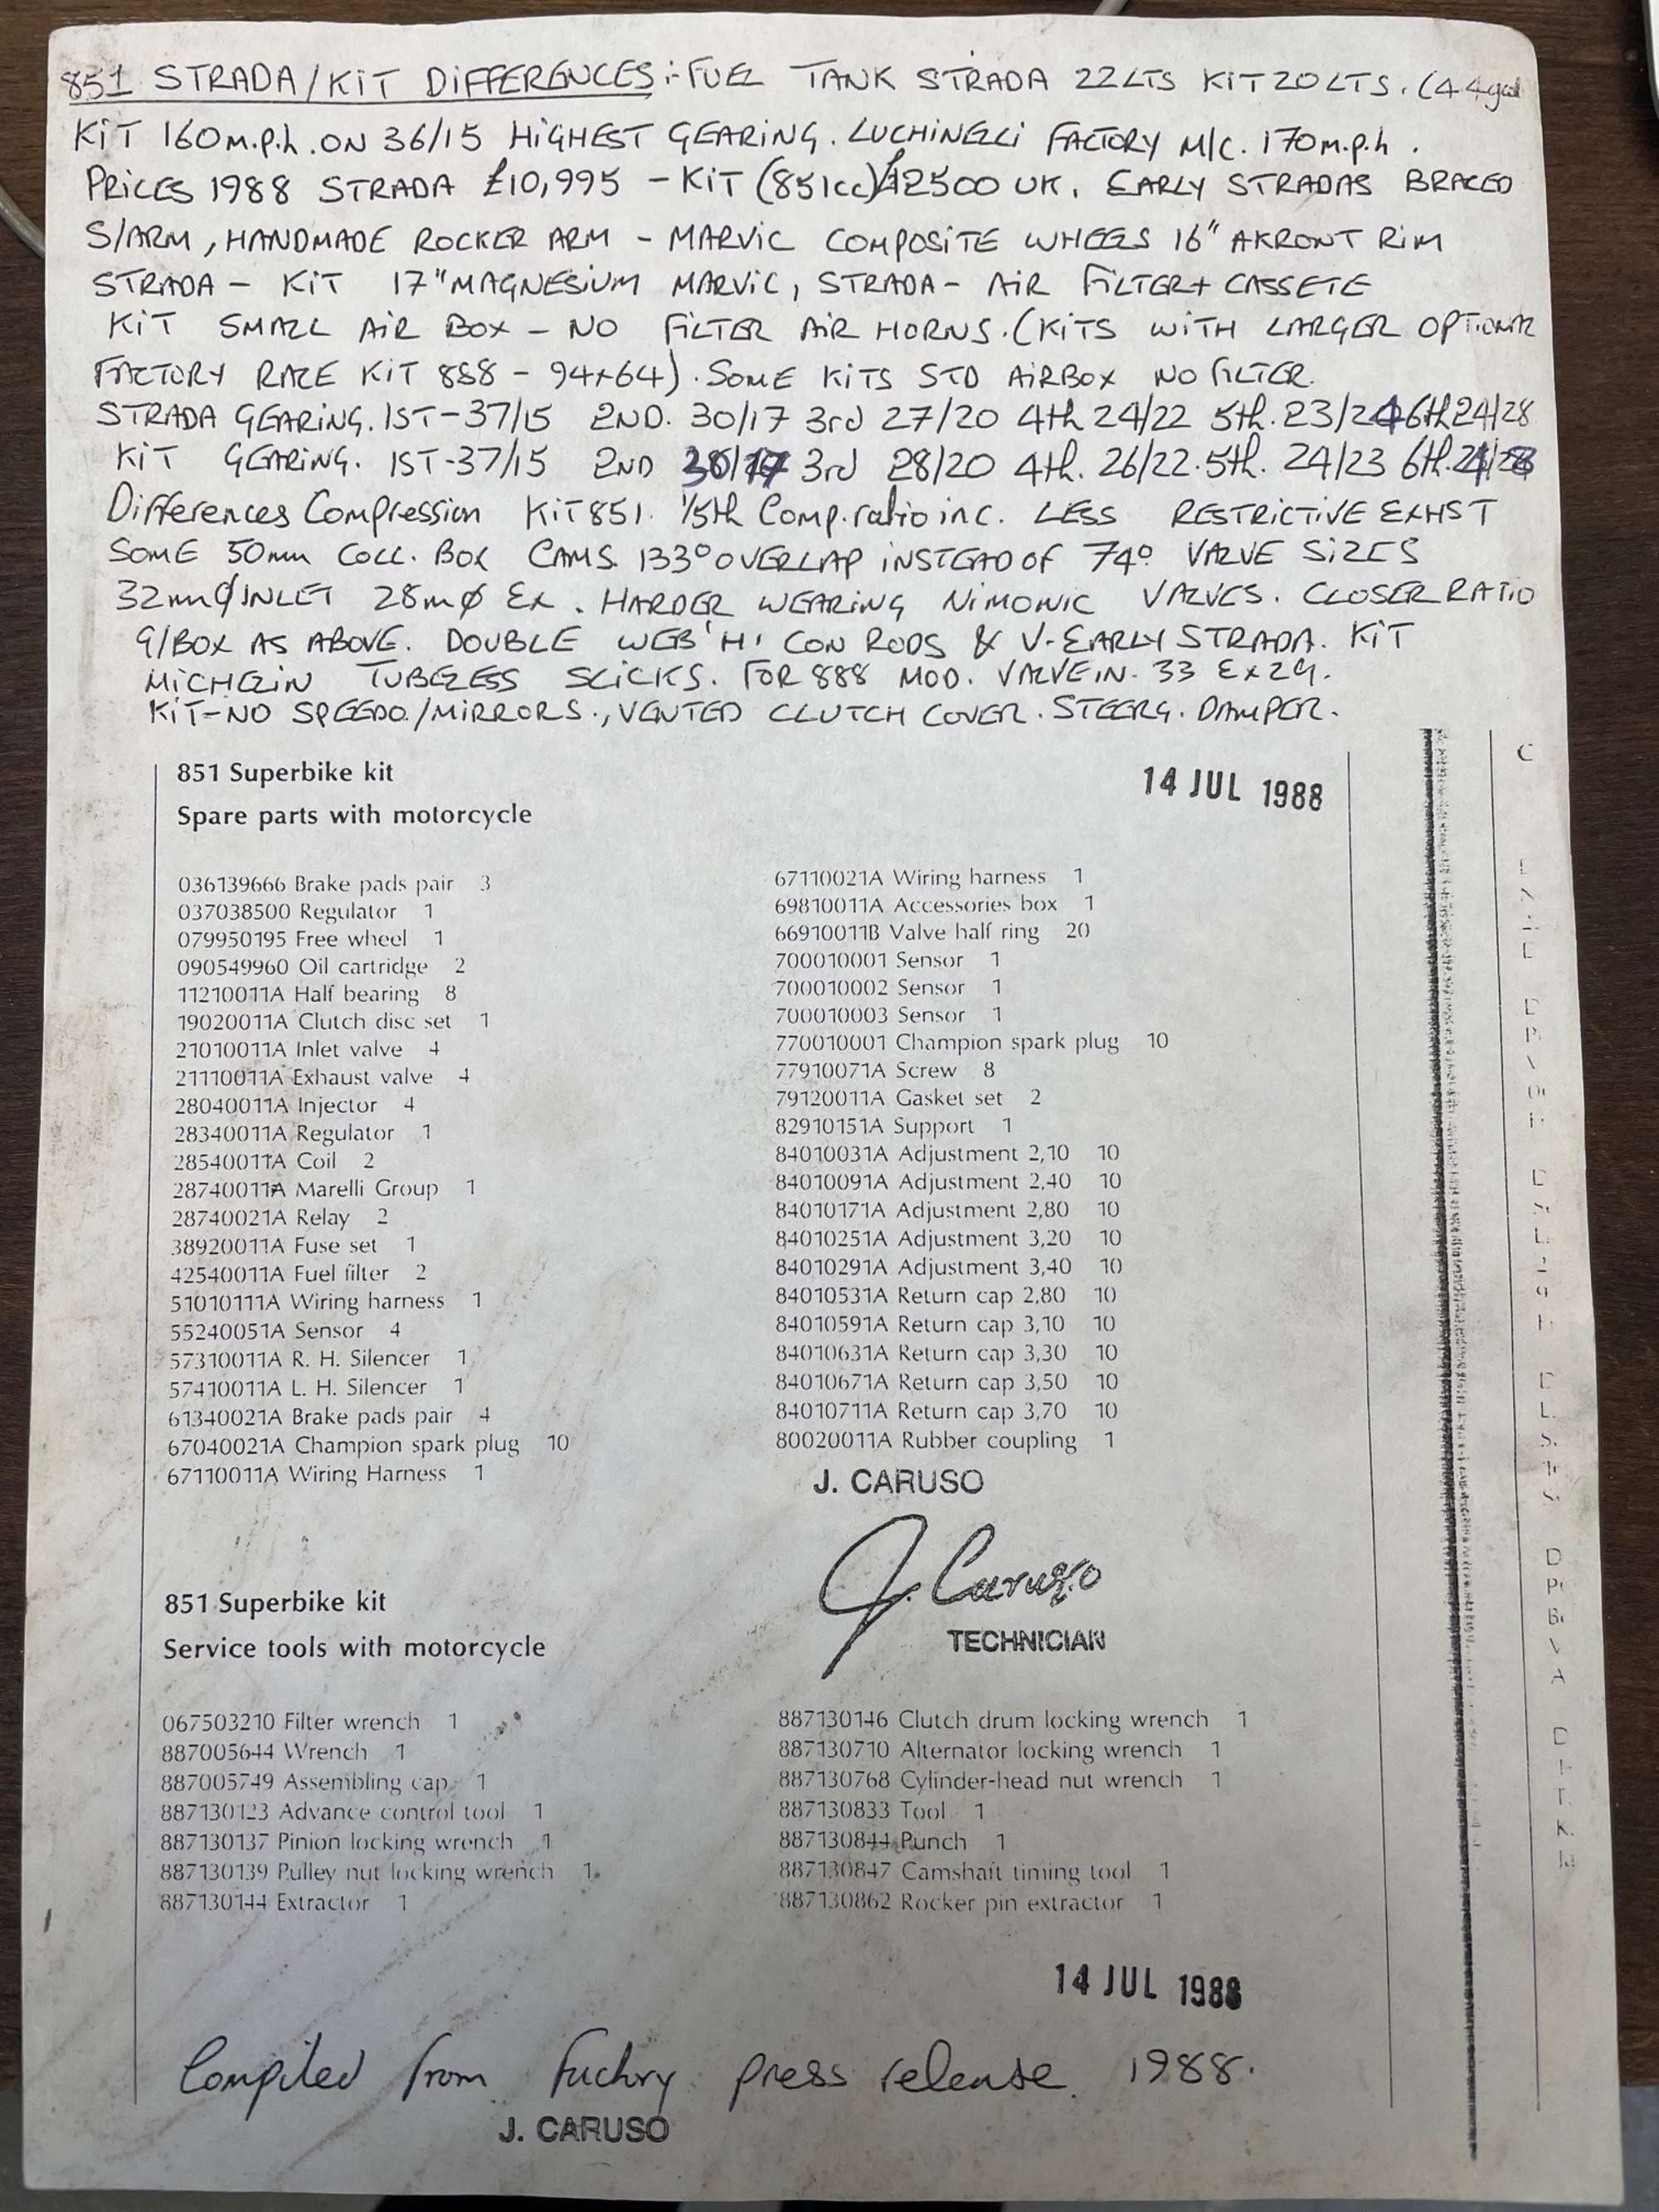 851 STRADA/KIT DIFFERENCES:- FUEL TANK STRADA 22LTS KIT 20LTS. (4.4gal
KIT 160 M.P.h. ON 36/15 HIGHEST GEARING. LUCHINELLI FACTORY M/C. 170 m.p.h.
PRICES 1988 STRADA £10,995 - KIT (851cc) £12500 UK. EARLY STRADAS BRACED
S/ARM, HANDMADE ROCKER ARM - MARVIC COMPOSITE WHEELS 16" AKRONT RIM
STRADA - KIT 17" MAGNESIUM MARVIC, STRADA - AIR FILTER + CASSETE
KIT SMALL AIR BOX - NO FILTER AIR HORNS. (KITS WITH LARGER OPTIONAL
FACTORY RACE KIT 888 - 94x64). SOME KITS STD AIRBOX NO FILTER.
STRADA GEARING. 1ST-37/15 2ND. 30/17 3rd 27/20 4th 24/22 5th. 23/24 6th 24/28
KIT GEARING. 1ST-37/15 2ND 3rd 28/20 4th. 26/22. 5th. 24/23 6th.
Differences Compression KIT 851. 1/5th Comp. ratio inc. LESS RESTRICTIVE EXHST
SOME 50mm COLL. BOX CAMS. 133° OVERLAP INSTEAD OF 74° VALVE SIZES
32mmϕ INLET 28mϕ EX. HARDER WEARING NIMONIC VALVES. CLOSER RATIO
G/BOX AS ABOVE. DOUBLE WEB 'H' CON RODS & V-EARLY STRADA. KIT
MICHELIN TUBELESS SLICKS. FOR 888 MOD. VALVE IN. 33 EX 29.
KIT-NO SPEEDO./MIRRORS., VENTED CLUTCH COVER. STEERG. DAMPER.
851 Superbike kit
Spare parts with motorcycle
14 JUL 1988
036139666 Brake pads pair 3
037038500 Regulator 1
079950195 Free wheel 1
090549960 Oil cartridge 2
11210011A Half bearing 8
19020011A Clutch disc set 1
21010011A Inlet valve 4
21110011A Exhaust valve 4
28040011A Injector 4
28340011A Regulator 1
28540011A Coil 2
28740011A Marelli Group 1
28740021A Relay 2
38920011A Fuse set 1
42540011A Fuel filter 2
51010111A Wiring harness 1
55240051A Sensor 4
57310011A R. H. Silencer 1
57410011A L. H. Silencer 1
61340021A Brake pads pair 4
67040021A Champion spark plug 10
67110011A Wiring Harness 1
67110021A Wiring harness 1
69810011A Accessories box 1
66910011B Valve half ring 20
700010001 Sensor 1
700010002 Sensor 1
700010003 Sensor 1
770010001 Champion spark plug 10
77910071A Screw 8
79120011A Gasket set 2
82910151A Support 1
84010031A Adjustment 2,10 10
84010091A Adjustment 2,40 10
84010171A Adjustment 2,80 10
84010251A Adjustment 3,20 10
84010291A Adjustment 3,40 10
84010531A Return cap 2,80 10
84010591A Return cap 3,10 10
84010631A Return cap 3,30 10
84010671A Return cap 3,50 10
84010711A Return cap 3,70 10
80020011A Rubber coupling 1
J. CARUSO
J. Caruso
TECHNICIAN
851 Superbike kit
Service tools with motorcycle
067503210 Filter wrench 1
887005644 Wrench 1
887005749 Assembling cap 1
887130123 Advance control tool 1
887130137 Pinion locking wrench 1
887130139 Pulley nut locking wrench 1
887130144 Extractor 1
887130146 Clutch drum locking wrench 1
887130710 Alternator locking wrench 1
887130768 Cylinder-head nut wrench 1
887130833 Tool 1
887130844 Punch 1
887130847 Camshaft timing tool 1
887130862 Rocker pin extractor 1
14 JUL 1988
Compiled from factory press release. 1988.
J. CARUSO